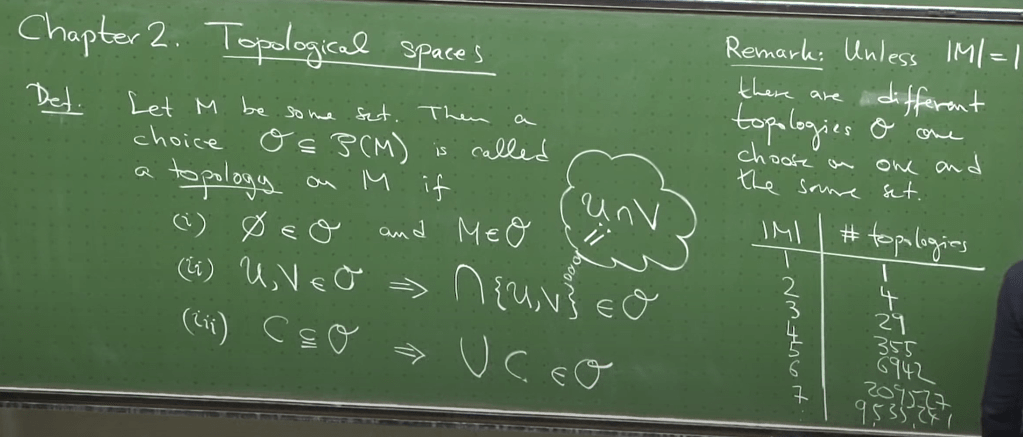 Chapter 2. Topological spaces
Def. Let M be some set. Then a
choice O ⊆ P(M) is called
a topology on M if
(i) ∅ ∈ O and M ∈ O
(ii) U,V ∈ O ⇒ ⋂{U,V} ∈ O
U∩V
=:
(iii) C ⊆ O ⇒ ⋃ C ∈ O
Remark: Unless |M|=1
there are different
topologies O one
choose on one and
the same set.
|M| # topologies
1 1
2 4
3 29
4 355
5 6942
6 209527
7 9,535,241